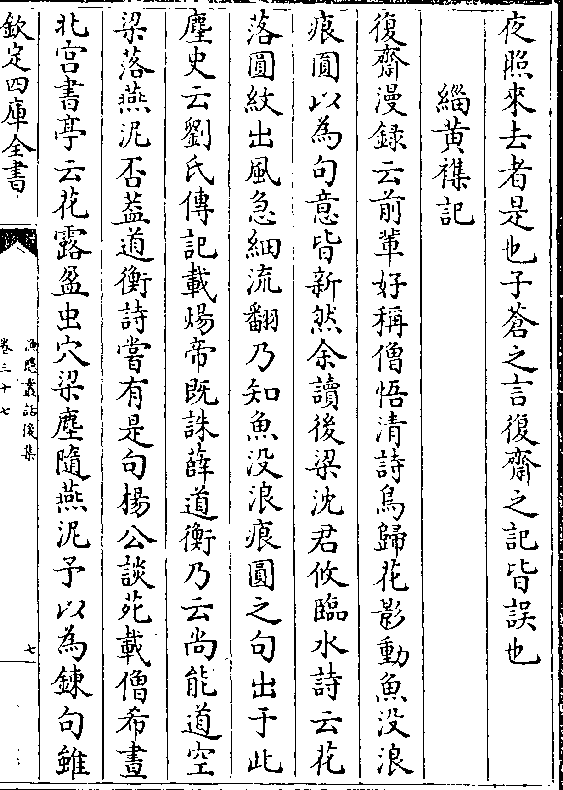 夜照來去者是也子蒼之言復齋之記皆誤也
緇黄襍記
復齋漫録云前輩好稱僧悟清詩鳥歸花影動魚没浪
痕圓以為句意皆新然余讀後梁沈君攸臨水詩云花
落圓紋出風急細流翻乃知魚没浪痕圓之句出于此
麈史云劉氏傳記載煬帝既誅薛道衡乃云尚能道空
梁落燕泥否葢道衡詩嘗有是句楊公談苑載僧希晝
北宫書亭云花露盈虫穴梁塵隨燕泥予以為鍊句雖
欽定四庫全書
漁隱叢話後集
卷三十七
七